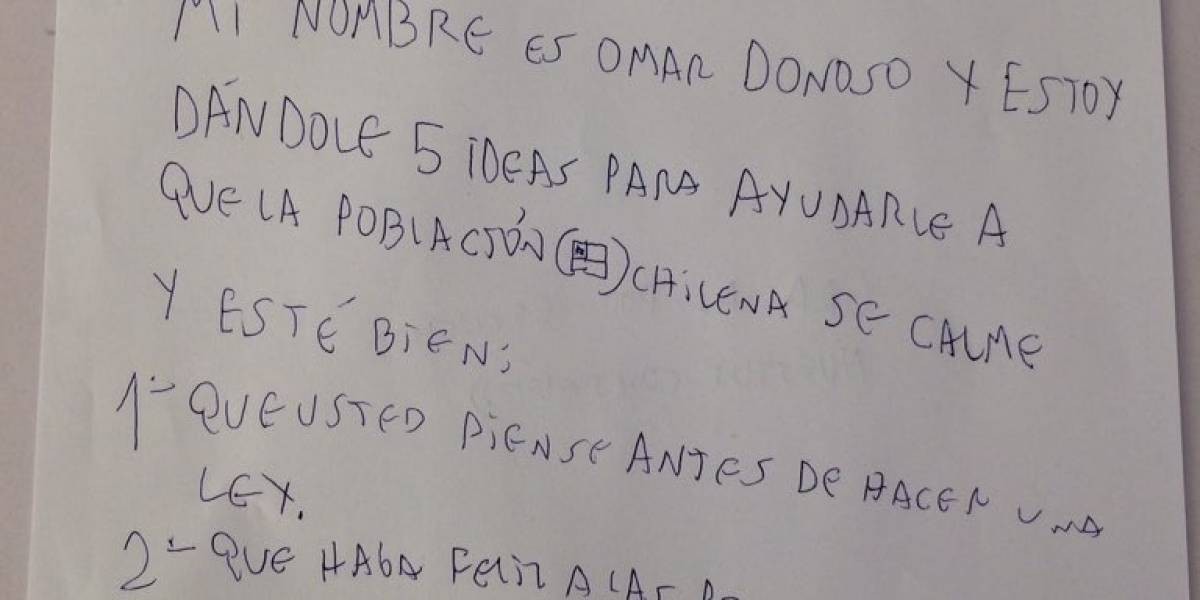 MI NOMBRE ES OMAR DONOSO Y ESTOY
DÁNDOLE 5 IDEAS PARA AYUDARLE A
QUE LA POBLACIÓN ( ) CHILENA SE CALME
Y ESTÉ BIEN;
1- QUE USTED PIENSE ANTES DE HACER UNA
LEY.
2- QUE HAGA FELIZ A LAS